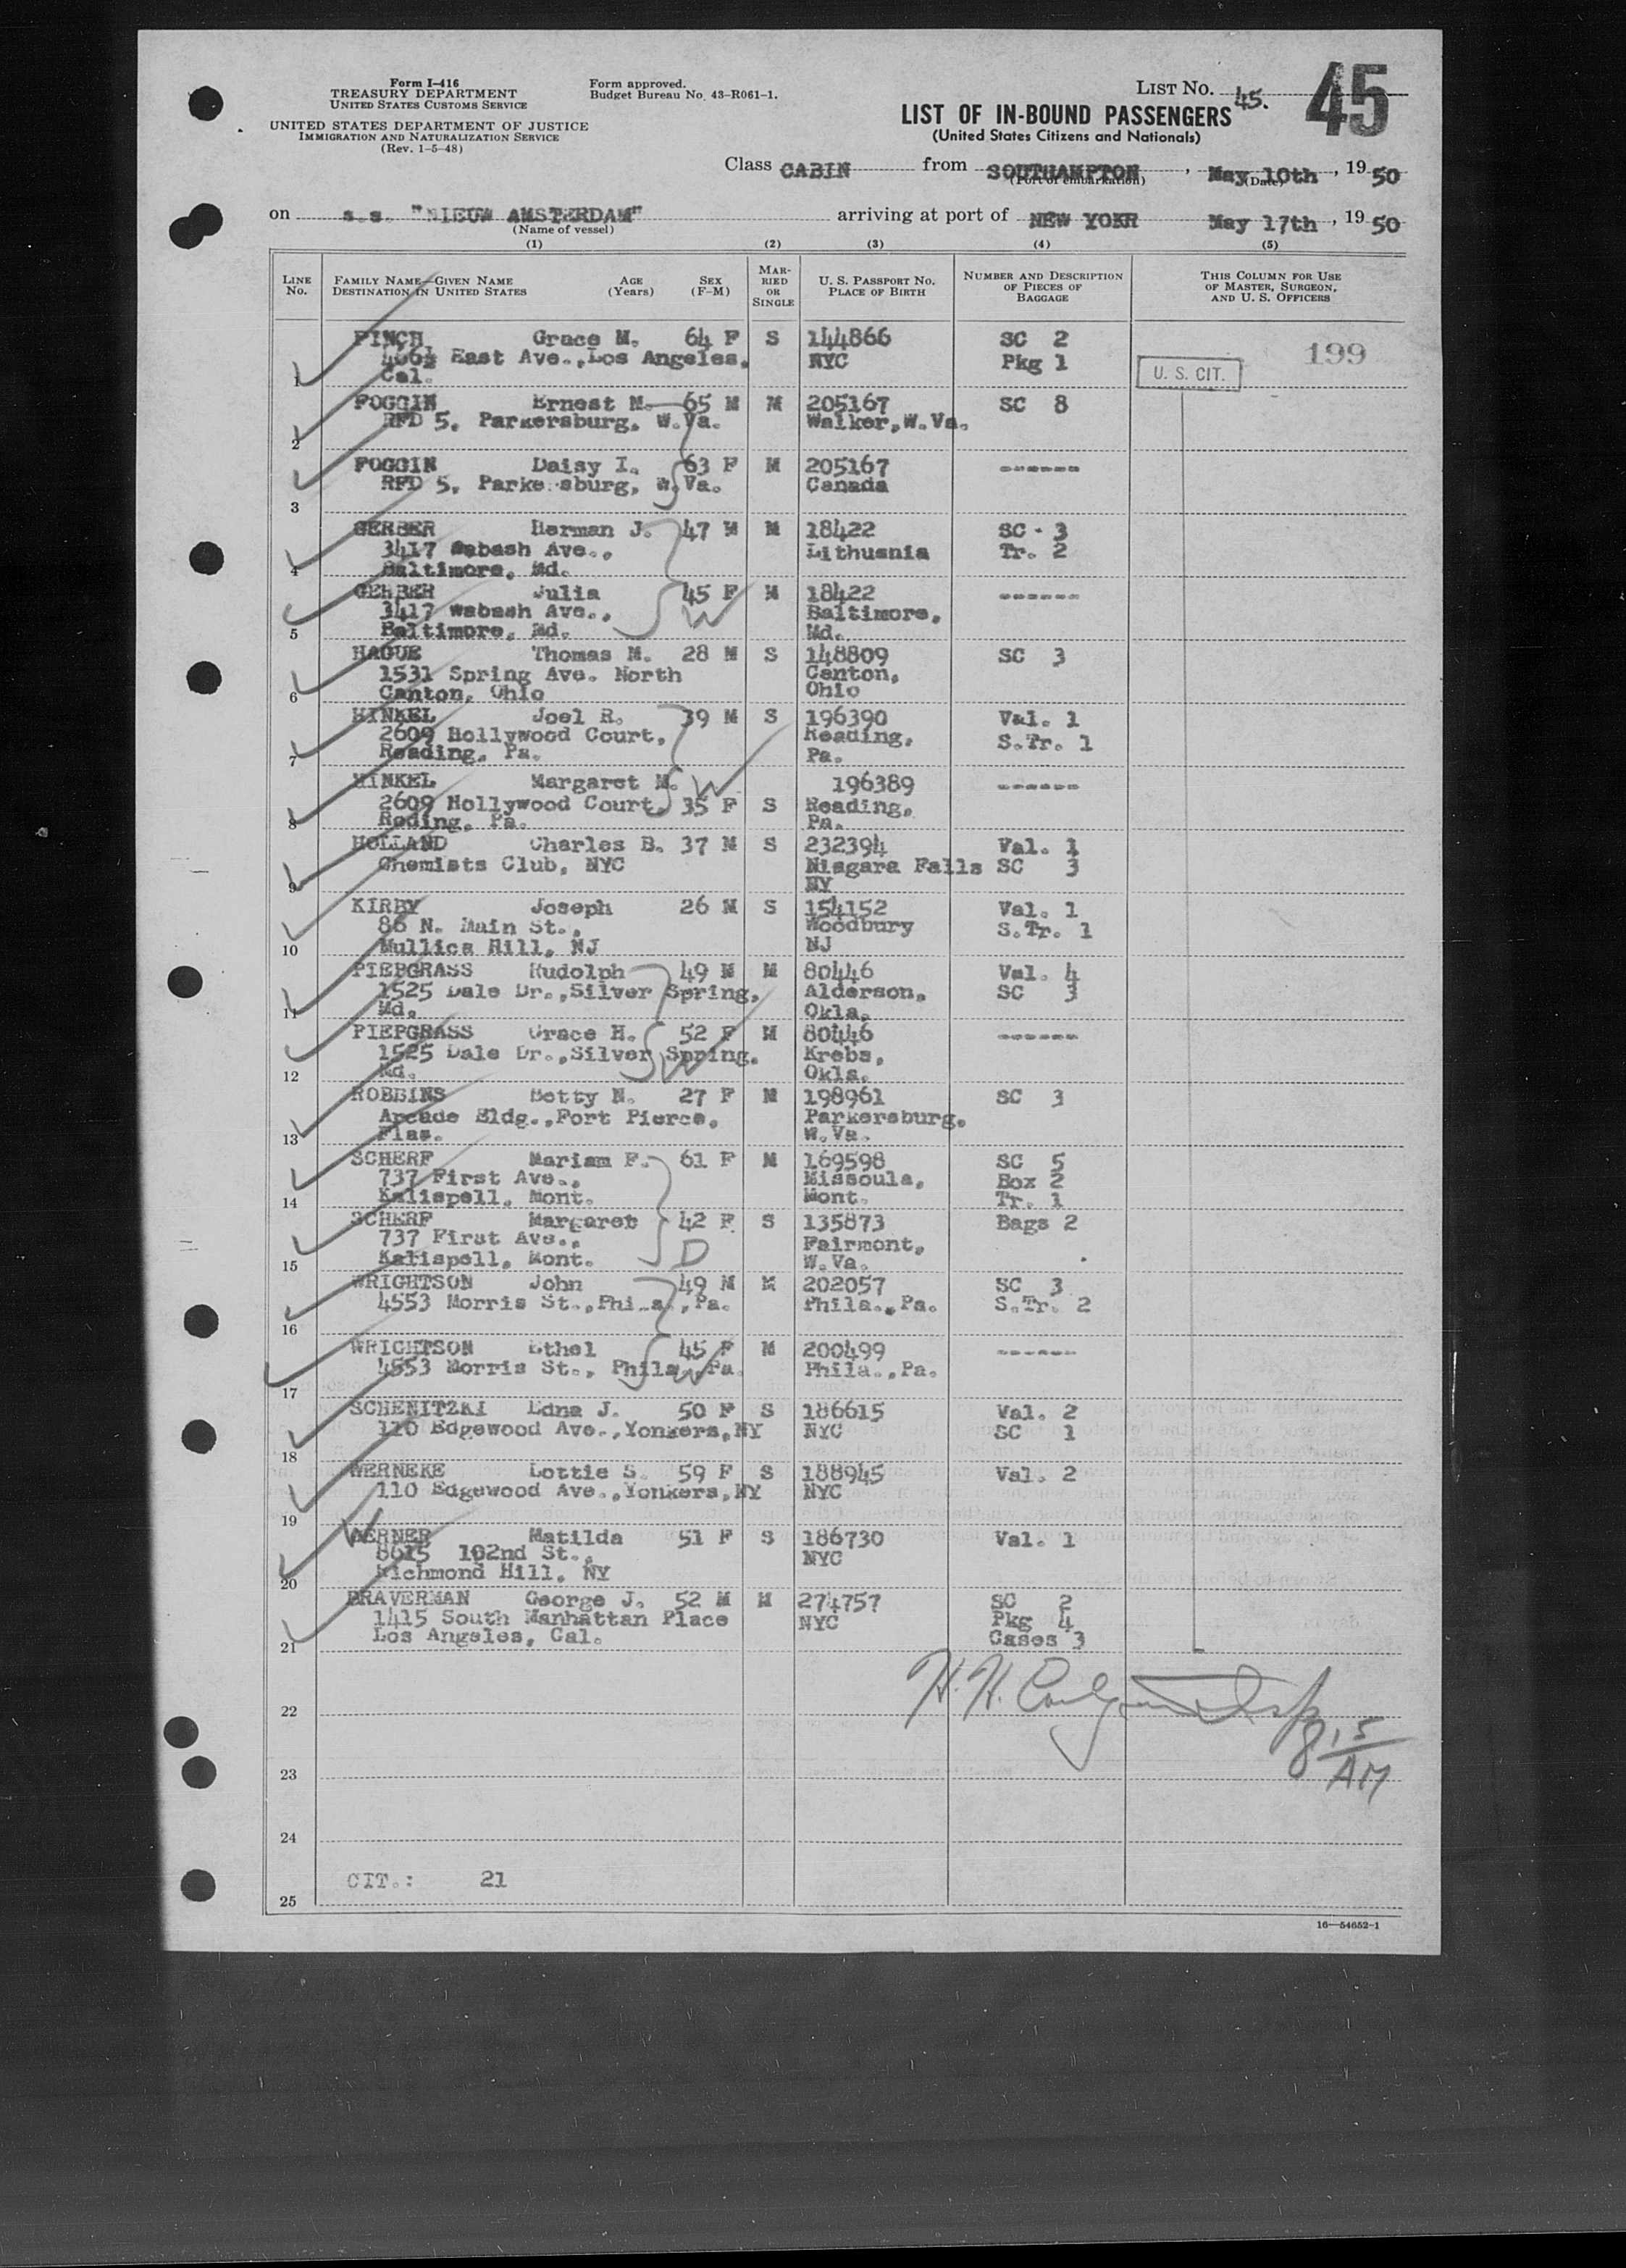 Form I-416
TREASURY DEPARTMENT
UNITED STATES CUSTOMS SERVICE
UNITED STATES DEPARTMENT OF JUSTICE
IMMIGRATION AND NATURALIZATION SERVICE
(Rev. 1-5-48)
Form approved.
Budget Bureau No. 43-R061-1.
LIST No. 45.
45
LIST OF IN-BOUND PASSENGERS
(United States Citizens and Nationals)
Class CABIN from SOUTHAMPTON, May 10th, 1950
(Port of embarkation) (Date)
on s.s. "NIEUW AMSTERDAM" arriving at port of NEW YOKR May 17th, 1950
(Name of vessel)
(1) (2) (3) (4) (5)
LINE No. FAMILY NAME—GIVEN NAME DESTINATION IN UNITED STATES AGE (Years) SEX (F-M) MARRIED OR SINGLE U. S. PASSPORT No. PLACE OF BIRTH NUMBER AND DESCRIPTION OF PIECES OF BAGGAGE THIS COLUMN FOR USE OF MASTER, SURGEON, AND U. S. OFFICERS
FINCH Grace M. 64 F S 144866 SC 2 199
East Ave.,Los Angeles, NYC Pkg 1 U. S. CIT.
1 Cal.
FOGGIN Ernest M. 65 M M 205167 SC 8
RFD 5, Parkersburg, W.Va. Walker,W.Va.
2
FOGGIN Daisy I. 63 F M 205167 ------
RFD 5, Parkersburg, W.Va. Canada
3
GERBER Herman J. 47 M M 18422 SC - 3
3417 Wabash Ave., Lithuania Tr. 2
4 Baltimore, Md.
GERBER Julia 45 F M 18422 ------
3417 Wabash Ave., W Baltimore,
5 Baltimore, Md. Md.
HAGUE Thomas M. 28 M S 148809 SC 3
1531 Spring Ave. North Canton,
6 Canton, Ohio Ohio
HINKEL Joel R. 39 M S 196390 Val. 1
2609 Hollywood Court, Reading, S.Tr. 1
7 Reading, Pa. Pa.
HINKEL Margaret M. W 196389 ------
2609 Hollywood Court, 35 F S Reading,
8 Roding, Pa. Pa.
HOLLAND Charles B. 37 M S 232394 Val. 1
Chemists Club, NYC Niagara Falls SC 3
9 NY
KIRBY Joseph 26 M S 154152 Val. 1
86 N. Main St., Woodbury S.Tr. 1
10 Mullica Hill, NJ NJ
PIEPGRASS Rudolph 49 M M 80446 Val. 4
1525 Dale Dr.,Silver Spring, Alderson, SC 3
11 Md. Okla.
PIEPGRASS Grace H. 52 F M 80446 ------
1525 Dale Dr.,Silver Spring, W Krebs,
12 Md. Okla.
ROBBINS Betty N. 27 F M 198961 SC 3
Arcade Bldg.,Fort Pierce, Parkersburg,
13 Flas. W.Va.
SCHERF Mariam F. 61 F M 169598 SC 5
737 First Ave., Missoula, Box 2
14 Kalispell, Mont. Mont. Tr. 1
SCHERF Margaret 42 F S 135873 Bags 2
737 First Ave., D Fairmont,
15 Kalispell, Mont. W.Va.
WRIGHTSON John 49 M M 202057 SC 3
4553 Morris St.,Phila.,Pa. Phila.,Pa. S.Tr. 2
16
WRIGHTSON Ethel 45 F M 200499 ------
4553 Morris St., Phila, Pa. W Phila.,Pa.
17
SCHENITZKI Edna J. 50 F S 186615 Val. 2
110 Edgewood Ave.,Yonkers,NY NYC SC 1
18
WERNEKE Lottie S. 59 F S 188945 Val. 2
110 Edgewood Ave.,Yonkers,NY NYC
19
WERNER Matilda 51 F S 186730 Val. 1
8615 102nd St., NYC
20 Richmond Hill, NY
BRAVERMAN George J. 52 M M 274757 SC 2
1415 South Manhattan Place NYC Pkg 4
21 Los Angeles, Cal. Cases 3
H. H.
22
8 15
AM
23
24
CIT.: 21
25
16—54652-1